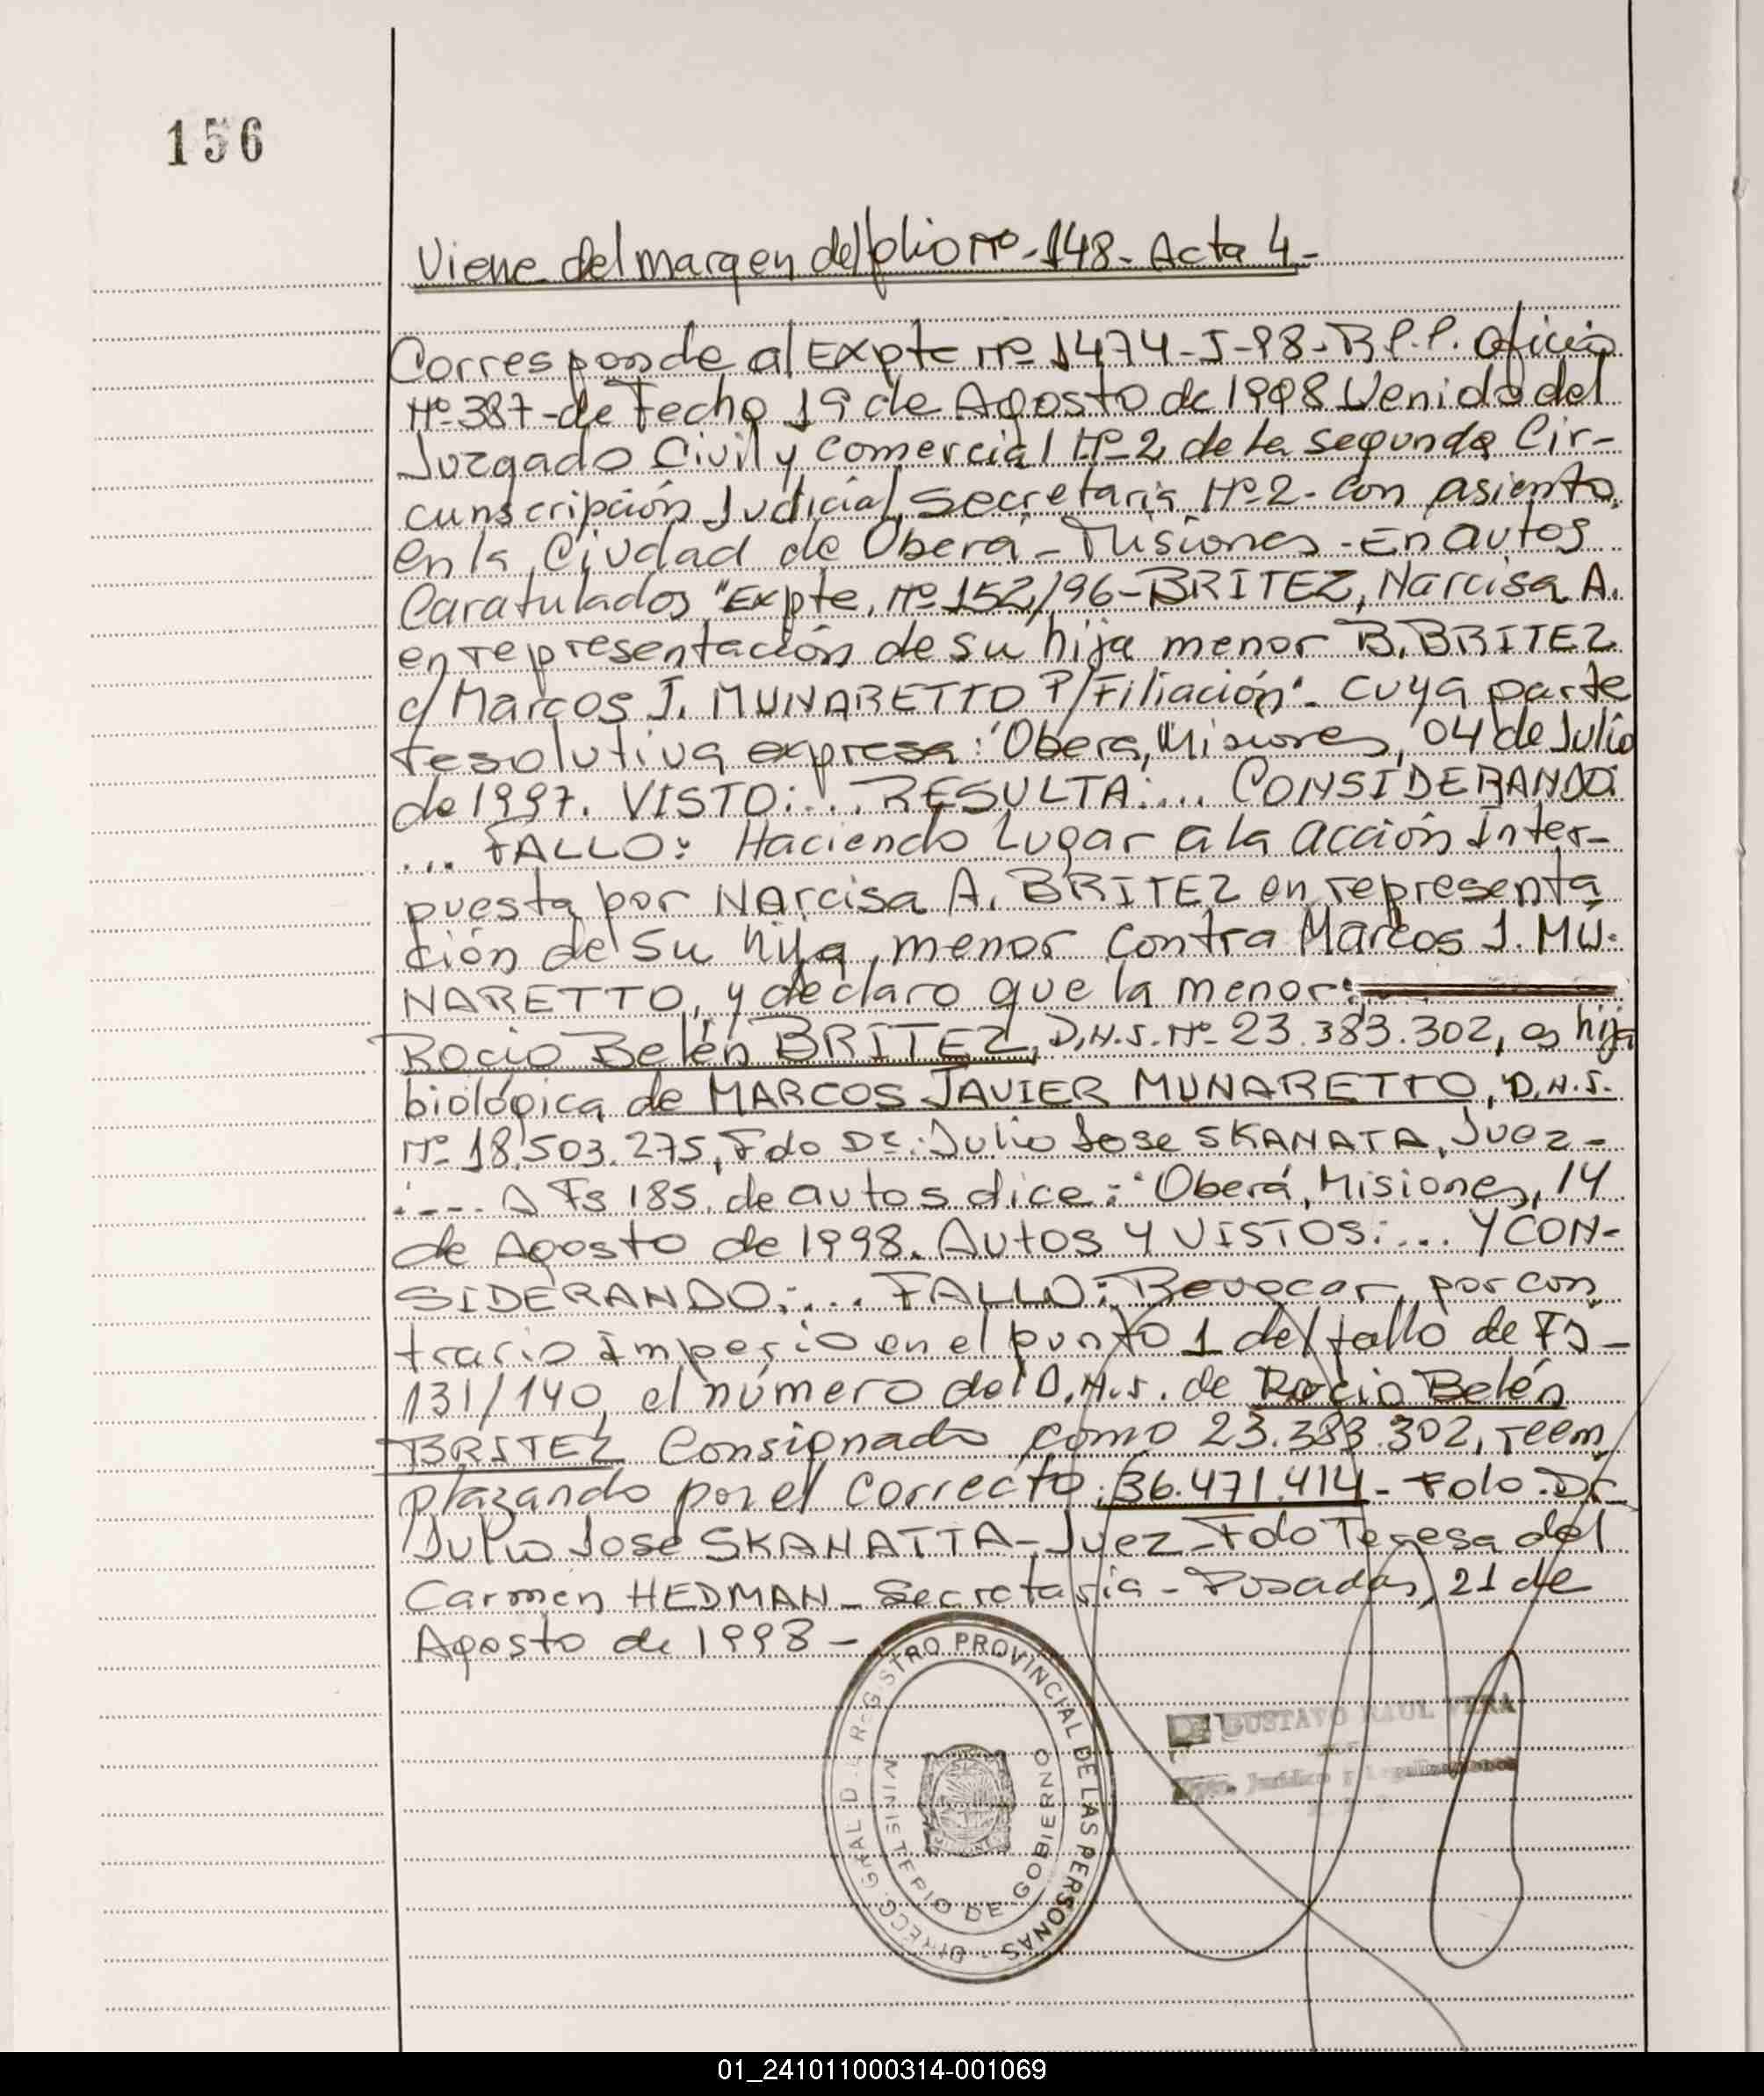 156
Viene del margen del folio Nº-148- Acta 4-
Corresponde al Expte Nº 1474-J-98- R.P.P. Oficio
Nº-387-de Fecha 19 de Agosto de 1998 Venido del
Juzgado Civil y Comercial Nº-2 de la segunda Cir-
cunscripción Judicial, Secretaría Nº-2- Con asiento
en la Ciudad de Oberá - Misiones - En autos
Caratulados "Expte, Nº 152/96-BRITEZ, Narcisa A.
en representación de su hija menor B. BRITEZ
c/ Marcos J. MUNARETTO P/Filiación"- Cuya parte
resolutiva expresa: "Oberá, Misiones, 04 de Julio
de 1997. VISTO:... RESULTA:... CONSIDERANDO:
... FALLO: Haciendo Lugar a la acción Inter-
puesta por Narcisa A. BRITEZ en representa
ción de Su hija menor Contra Marcos J. MU-
NARETTO, y declaro que la menor:
Rocio Belén BRITEZ, D.N.I. Nº- 23.383.302, es hija
biológica de MARCOS JAVIER MUNARETTO, D.N.I.
Nº- 18.503.275, Fdo Dr: Julio Jose SKANATA, Juez-
:---- A Fs 185, de autos dice: "Oberá, Misiones, 14
de Agosto de 1998. Autos Y VISTOS:... Y CON-
SIDERANDO:... FALLO: Revocar por con
trario imperio en el punto 1 del fallo de Fs-
131/140, el número del D.N.I. de Rocio Belén
BRITEZ Consignado como 23.383.302, reem
plazando por el correcto: 36.471.414- Fdo. Dr
Julio José SKANATTA- Juez- Fdo Teresa del
Carmen HEDMAN- Secretaria - Posadas, 21 de
Agosto de 1998-
DIRECC. GRAL D E REGISTRO PROVINCIAL DE LAS PERSONAS -
MINISTERIO DE GOBIERNO
Dr GUSTAVO RAUL VERA
Jurídico y
01_241011000314-001069